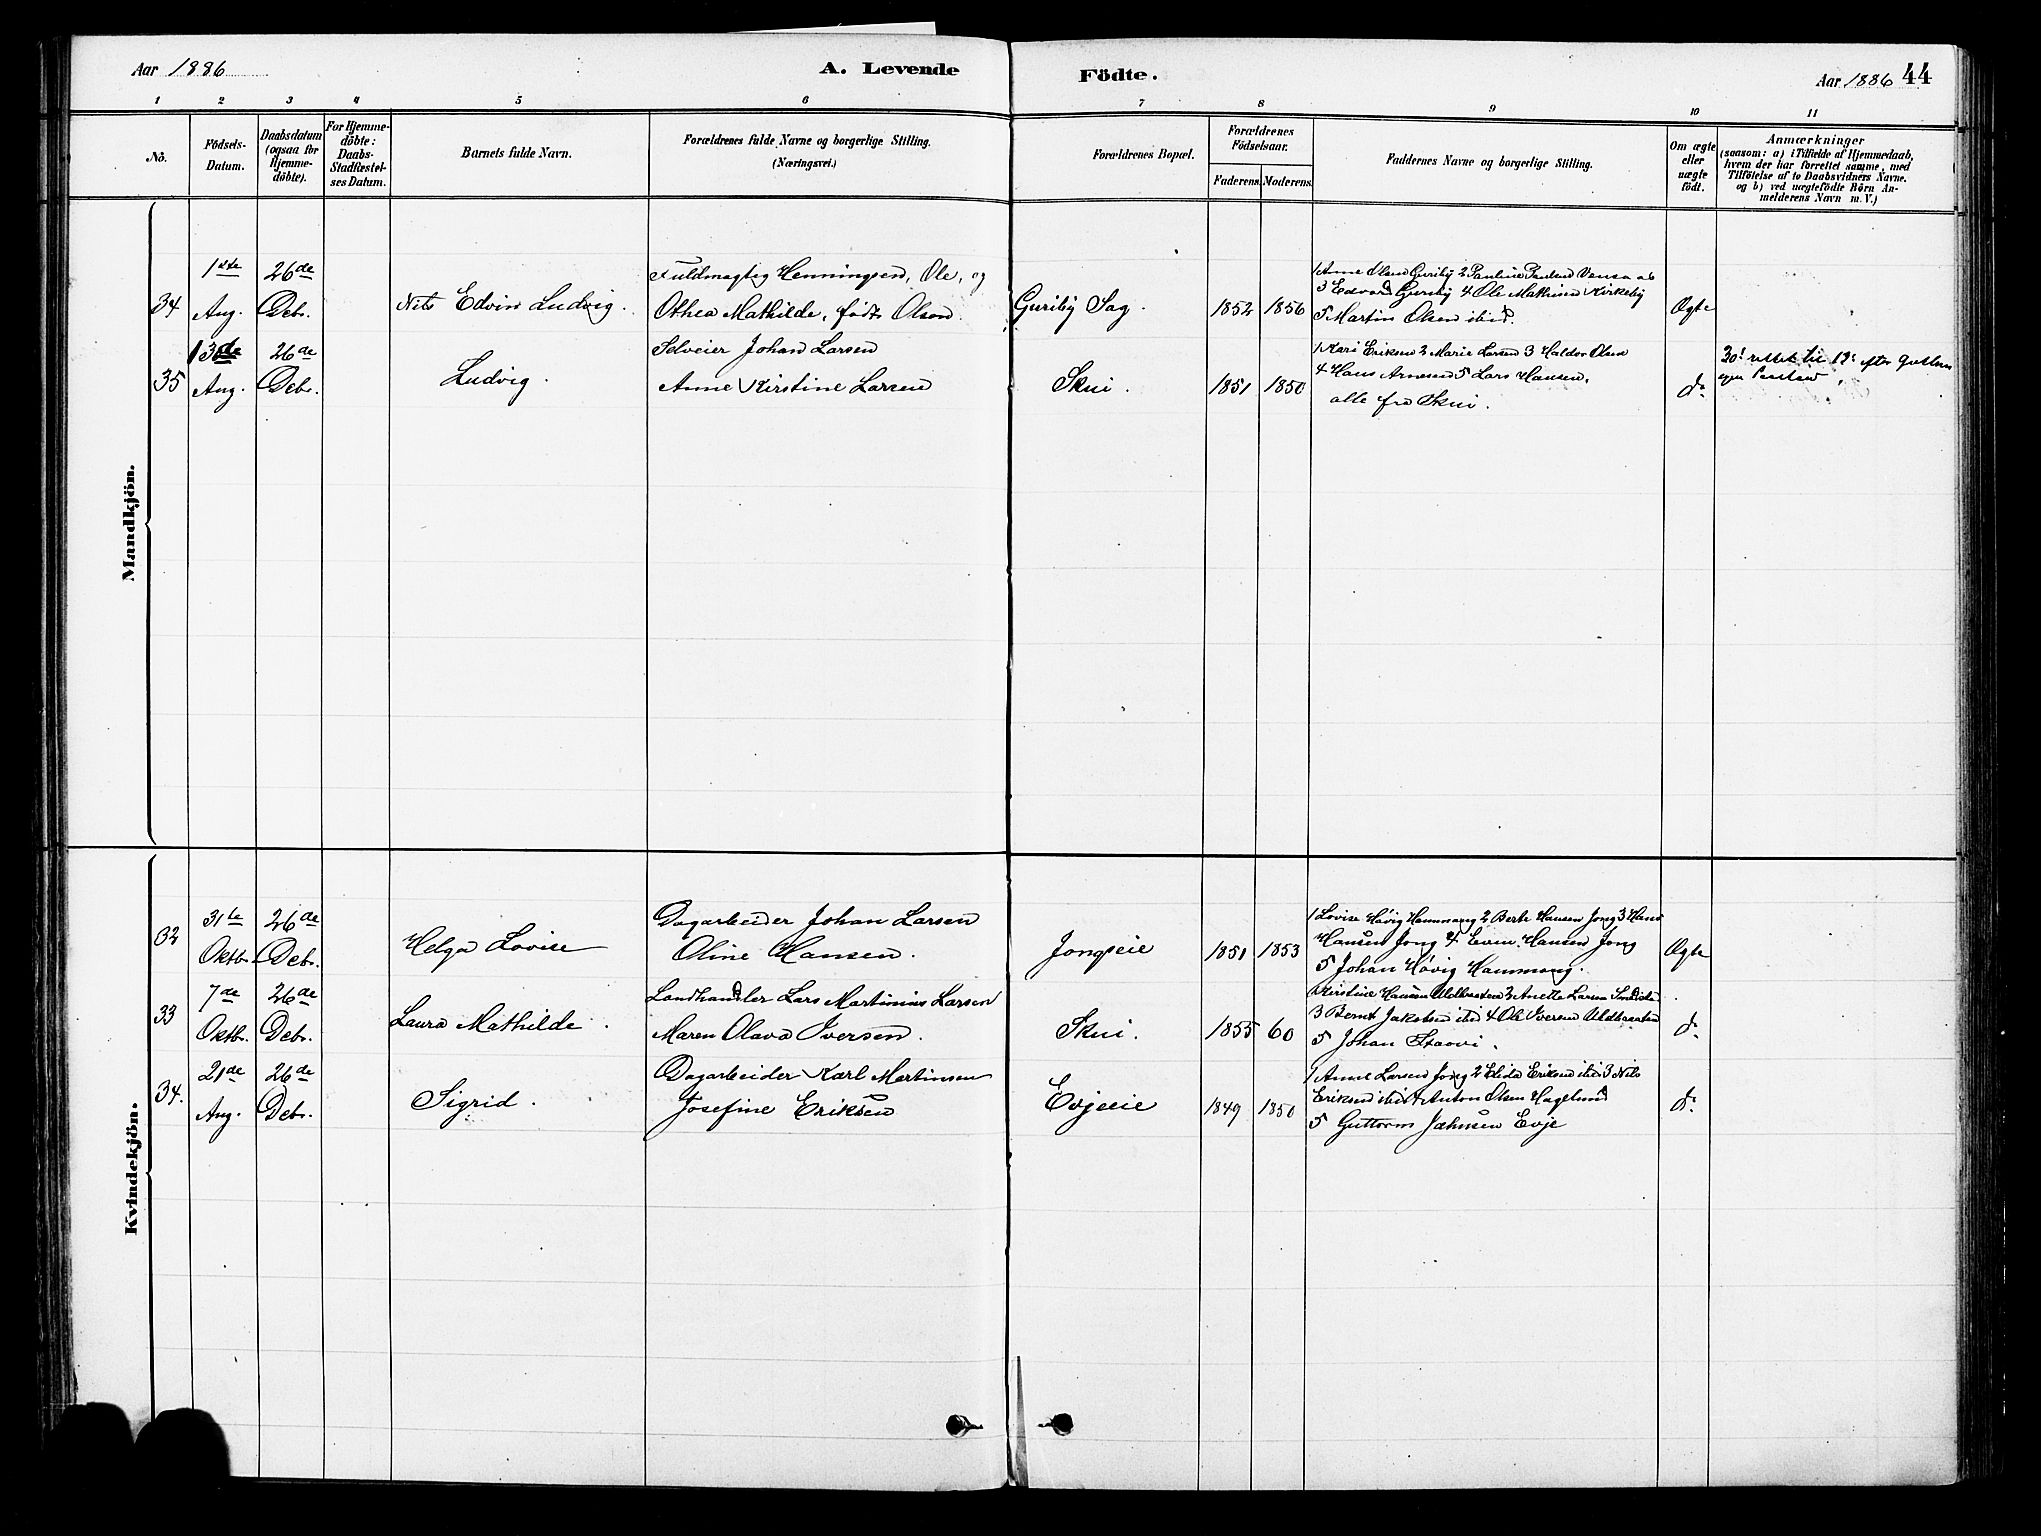 Aar 1886
A. Levende
Födte.
Aar 1886 44
1 2 3 4 5 6 7 8 9 10 11
No.
Födsels-
Datum.
Daabsdatum
(ogsaa for
Hjemme-
döbte).
For Hjemme-
döbte:
Daabs-
Stadfæstel-
ses Datum.
Barnets fulde Navn.
Forældrenes fulde Navne og borgerlige Stilling.
(Næringsvei.)
Forældrenes Bopæl.
Forældrenes
Födselsaar.
Faderens. Moderens.
Faddernes Navne og borgerlige Stilling.
Om ægte
eller
uægte
födt.
Anmærkninger
(saasom: a) i Tilfælde af Hjemmedaab,
hvem der har forrettet samme, med
Tilföielse af to Daabsvidners Navne.
og b) ved uægtefödte Börn An-
melderens Navn m. V.)
Mandkjön.
34
1ste
Aug.
26de
Debr.
Nils Edvin Ludvig.
Fuldmægtig Henningsen, Ole, og
Othea Mathilde, født Olson.
Guriby Sag.
1852 1856
1 Anne Olsen Guriby 2 Pauline Paulsen
3 Edvard Guriby 4 Ole Mathisen Kirkeby
5 Martin Olsen ibid.
Ægte
35
13de
Aug.
26de
Debr.
Ludvig.
Selveier Johan Larsen
Anne Kirstine Larsen
Skui.
1851 1850
1 Kari Eriksen 2 Marie Larsen 3 Haldor Olsen
4 Hans Arnesen 5 Lars Hansen,
alle fra Skui.
do
30' rettet til 13' efter
egen
Kvindekjön.
32
31te
Oktbr.
26de
Debr.
Helga Lovise
Dagarbeider Johan Larsen
Oline Hansen.
Jongseie
1851 1853
1 Lovise Høvig Hammang 2 Berte Hansen Jong 3 Hans
Hansen Jong 4 Even Hansen Jong
5 Johan Høvig Hammang.
Ægte
33
7de
Oktbr.
26de
Debr.
Laura Mathilde.
Landhandler Lars Martinius Larsen
Maren Olava Iversen.
Skui.
1855 60
1 Kirstine Hansen 2 Anette Larsen
3 Bernt Jakobsen ibid 4 Ole Iversen
5 Johan Staovi.
do
34.
21de
Aug.
26de
Debr.
Sigrid.
Dagarbeider Karl Martinsen
Josefine Eriksen
Evjeeie
1849 1850
1 Anne Larsen Jong 2 Eriksen ibid 3 Nils
Eriksen ibid 4 Anton Olsen Hagelund
5 Guttorm Jahnsen Evje
do